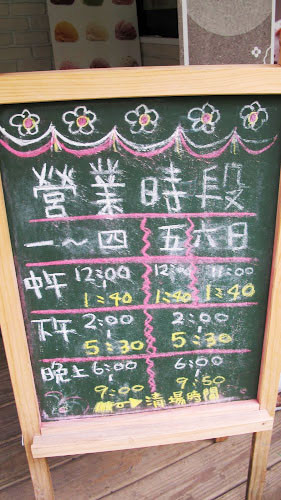 營業時段
一～四 五 六日
中午 12:00 12:00 11:00
1:40 1:40 1:40
下午 2:00 2:00
5:30 5:30
晚上 6:00 6:00
9:00 9:50
清場時間